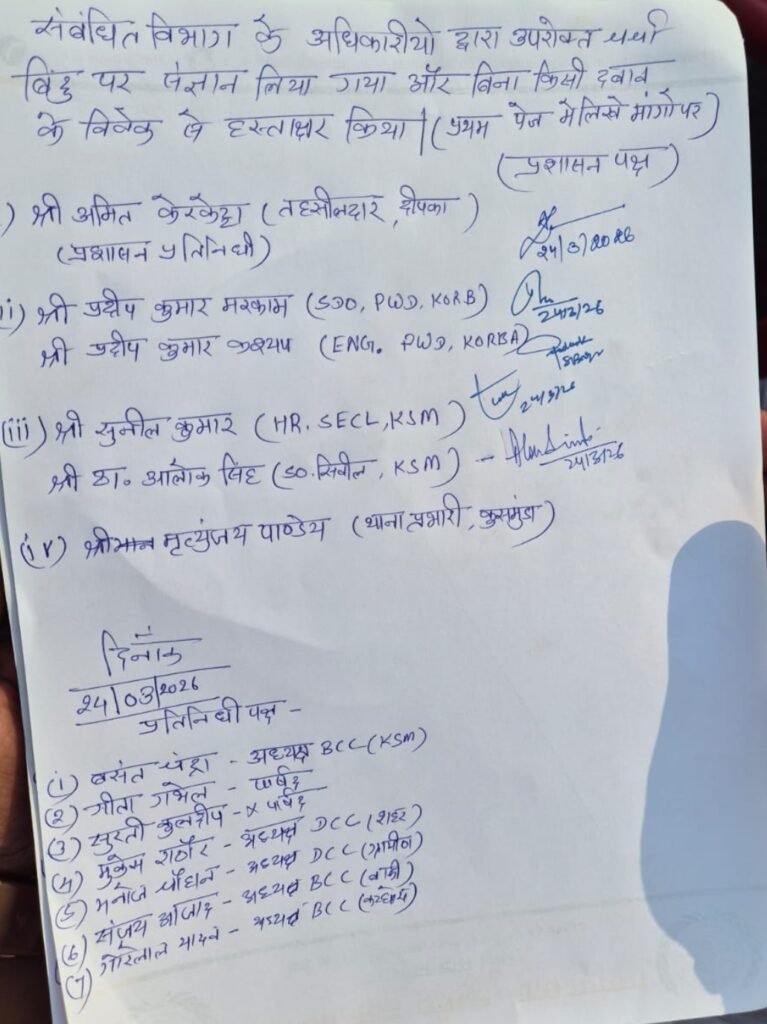 संबंधित विभाग के अधिकारीयो द्वारा उपरोक्त चर्चा
बिंदु पर संज्ञान लिया गया और बिना किसी दबाव
के विवेक से हस्ताक्षर किया। (प्रथम पेज मे लिखे मांगो पर)
(प्रशासन पक्ष)
) श्री अमित केरकेट्टा (तहसीलदार, दीपका)
(प्रशासन प्रतिनिधी)
24/3/2026
ii) श्री प्रदीप कुमार मरकाम (SDO, PWD, KORB)
24/3/26
श्री प्रदीप कुमार कश्यप (ENG. PWD, KORBA)
(iii) श्री सुनील कुमार (HR. SECL, KSM)
24/3/26
श्री डा. आलोक सिंह (SO. सिविल, KSM) -
24/3/26
(iv) श्रीमान मृत्युंजय पाण्डेय (थाना प्रभारी, कुसमुंडा)
दिनांक
24/03/2026
प्रतिनिधी पक्ष -
(1) बसंत चंद्रा - अध्यक्ष BCC (KSM)
(2) गीता गभेल - पार्षद
(3) सुरती कुलदीप - X पार्षद
(4) मुकेस राठौर - अध्यक्ष DCC (शहर)
(5) मनोज चौहान - अध्यक्ष DCC (ग्रामीण)
(6) संजय आजाद - अध्यक्ष BCC
(7) गोरेलाल यादव - अध्यक्ष BCC